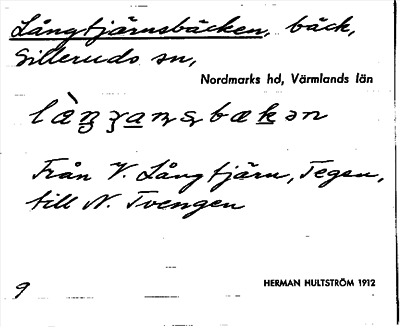 Långtjärnsbäcken, bäck,
Silleruds sn,
Nordmarks hd, Värmlands län
Från V. Långtjärn, Tegen,
till N. Tvengen
9
HERMAN HULTSTRÖM 1912